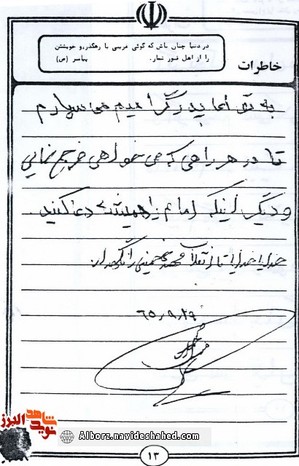 در دنیا چنان باش که گوئی غریبی یا رهگذر، و خویشتن
را از اهل قبور شمار. پیامبر (ص)
خاطرات
به تو ای پدر گرامیم می سپارم
تا در هر راهی که می خواهی خرج نمایی
و دیگر اینکه امام را همیشه دعا کنید.
خدایا خدایا تا انقلاب مهدی خمینی را نگهدار.
۶۵،۹،۲۶
شاهد
نوید
البرز
Alborz.navideshahed.com
۱۳